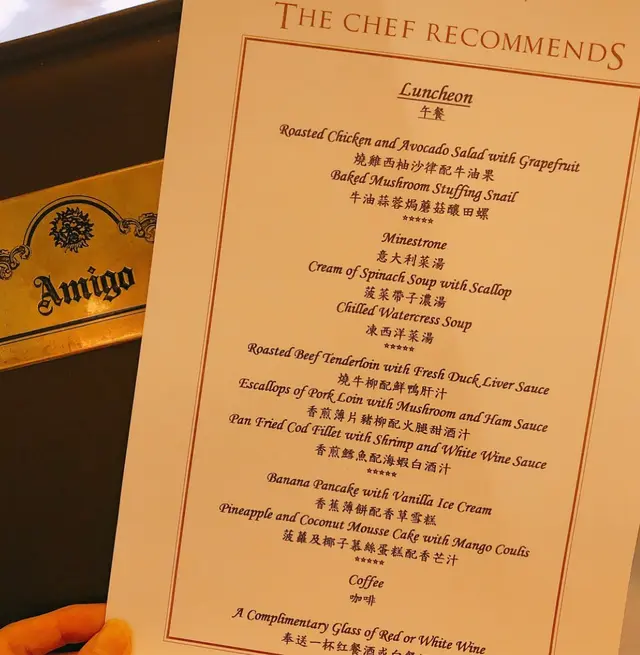 THE CHEF RECOMMENDS
Luncheon
午餐
Roasted Chicken and Avocado Salad with Grapefruit
燒雞西柚沙律配牛油果
Baked Mushroom Stuffing Snail
牛油蒜蓉焗蘑菇釀田螺
*****
Minestrone
意大利菜湯
Cream of Spinach Soup with Scallop
菠菜帶子濃湯
Chilled Watercress Soup
凍西洋菜湯
*****
Roasted Beef Tenderloin with Fresh Duck Liver Sauce
燒牛柳配鮮鴨肝汁
Escallops of Pork Loin with Mushroom and Ham Sauce
香煎薄片豬柳配火腿甜酒汁
Pan Fried Cod Fillet with Shrimp and White Wine Sauce
香煎鱈魚配海蝦白酒汁
*****
Banana Pancake with Vanilla Ice Cream
香蕉薄餅配香草雪糕
Pineapple and Coconut Mousse Cake with Mango Coulis
菠蘿及椰子慕絲蛋糕配香芒汁
*****
Coffee
咖啡
A Complimentary Glass of Red or White Wine
奉送一杯红餐酒或白餐
Amigo